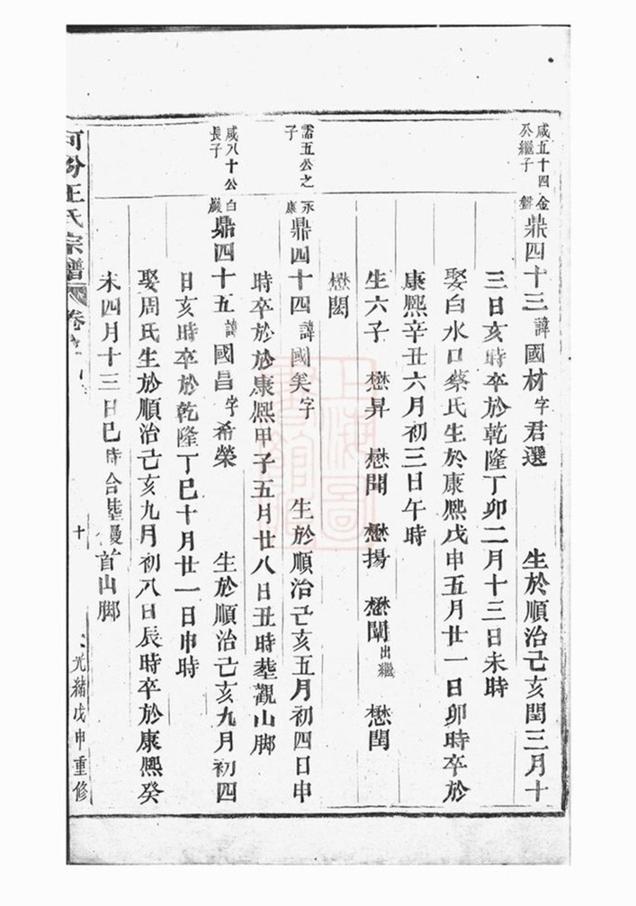 咸五十四金
公繼子盤
鼎四十三諱國材字君選 生於順治己亥閏三月十
三日亥時卒於乾隆丁卯二月十三日未時
娶白水口蔡氏生於康熙戊申五月廿一日卯時卒於
康熙辛丑六月初三日午時
生六子 懋昇 懋聞 懋揚 懋闌出繼 懋閏
懋閎
需五公之永
子康
鼎四十四諱國美字 生於順治己亥五月初四日申
時卒於於康熙甲子五月廿八日丑時塟觀山脚
咸八十公白
長子巖
鼎四十五諱國昌字希榮 生於順治己亥九月初四
日亥時卒於乾隆丁巳十月廿一日申時
娶周氏生於順治己亥九月初八日辰時卒於康熙癸
未四月十三日巳時合塟 首山脚
河汾王氏宗譜 卷 十 光緒戊申重修
上海圖
書館藏